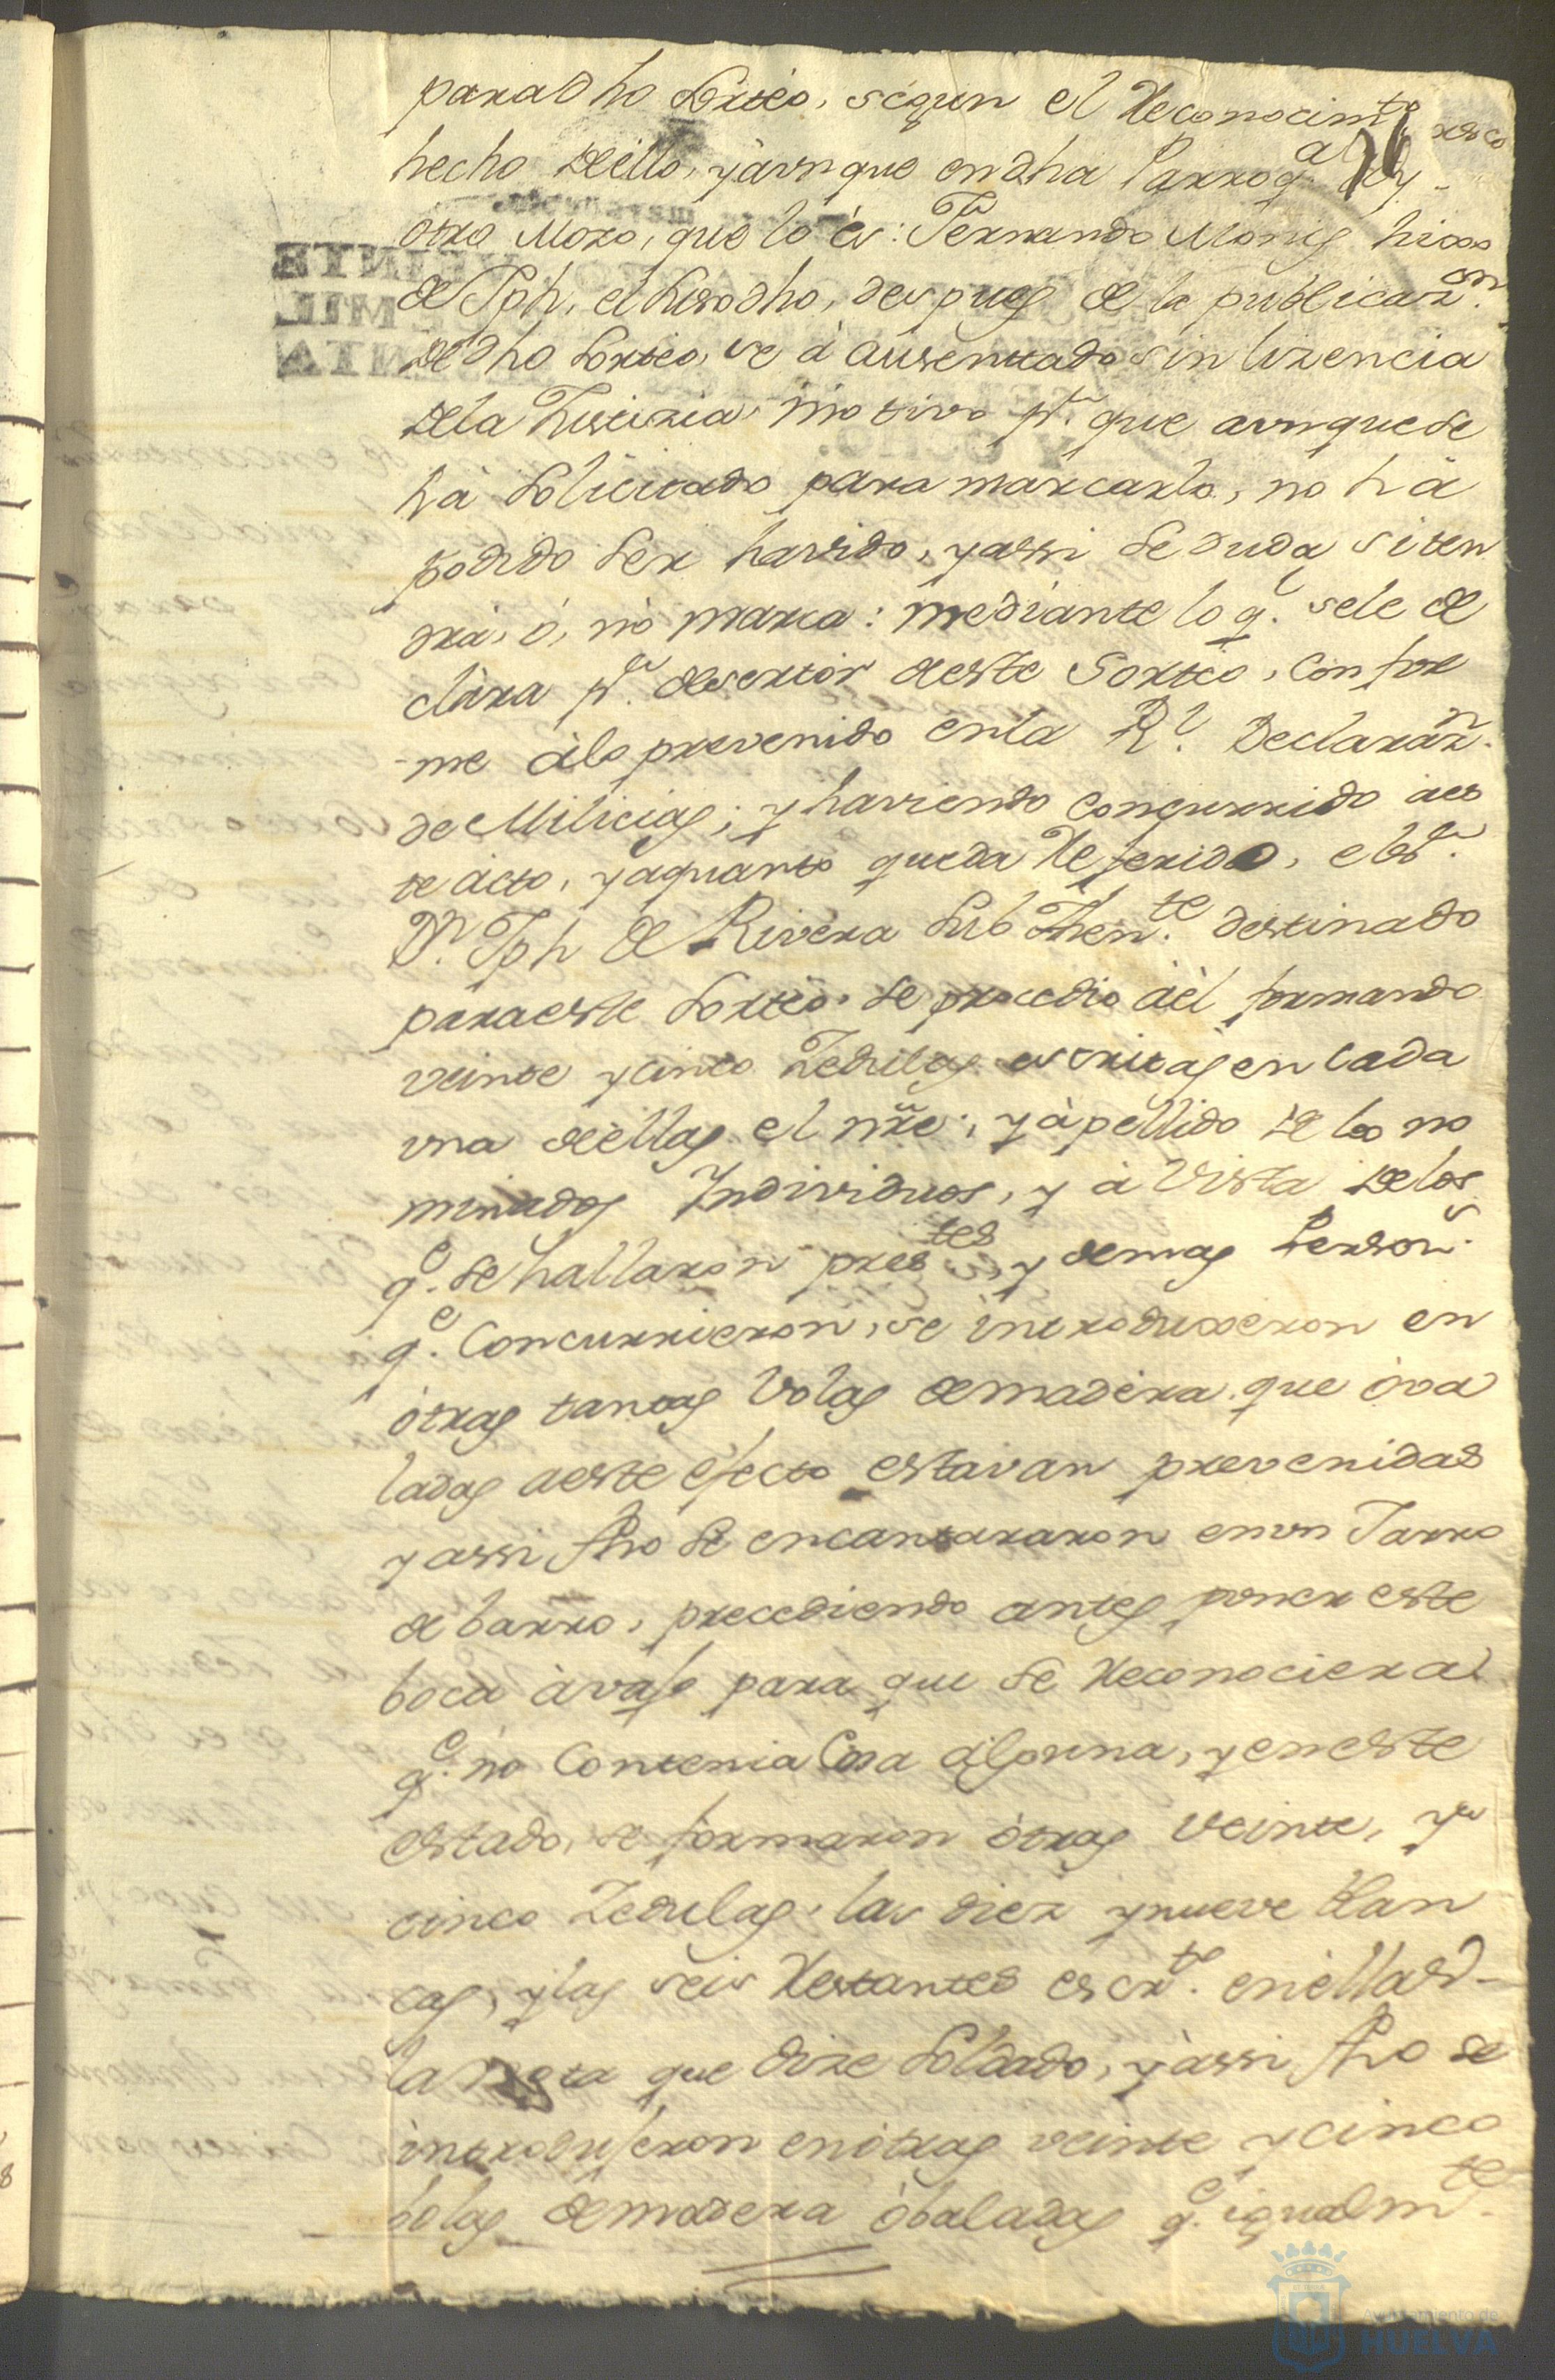 para dho Sorteo, según el Reconocimto
hecho de ello, y àvnque en dha Parroqa ay
otro Mozo, que lo és: Fernando Monis hixo
de Jph, el susodho, despues de la publicazon.
de dho Sorteo, se à ausentado sin lizencia
dela Justizia, motivo pr. que avnque se
hà solicitado para marcarlo, no hà
podido ser havido, y assi se duda si ten
drà, ò, nò marca: mediante lo qe. se le de
clàra pr. desertòr de este Sorteo, Confor
-me àlo prevenido en la Rl. Declarazn.
de Milicias; y haviendo concurrido àes
te àcto, y aquanto queda Referido, el Sr.
Dn. Jph de Rivera Sub Thente. destinado
para este Sorteo, se procediò àèl formando
veinte y cinco Zedulas escritas en cada
vna de èllas el nre., y àpellido de los no
minados Individuos, y à vista delos
qe. se hallaron prestes, y demas Person.
qe. Concurrieron, se introduxeron en
òtras tantas Volas de madèra que òva
ladas a este efecto estavan prevenidas
y assi fho se encantararon en vn Jarro
de barro, precediendo antes poner este
boca àvaxo para que se Reconociera
qe. nò Contenia Cosa àlguna, y en este
estado, se formaron òtras veinte, y
cinco Zedulas, las diez y nueve blan
cas, y las seis Restantes escrte. en èllas
la Nota que dize Soldado, y àssi fho se
introdujeron en òtras veinte y cinco
bolas de madera òbaladas qe. igualmte.
EINTE
MIL
NTA
Ayuntamiento de
HUELVA